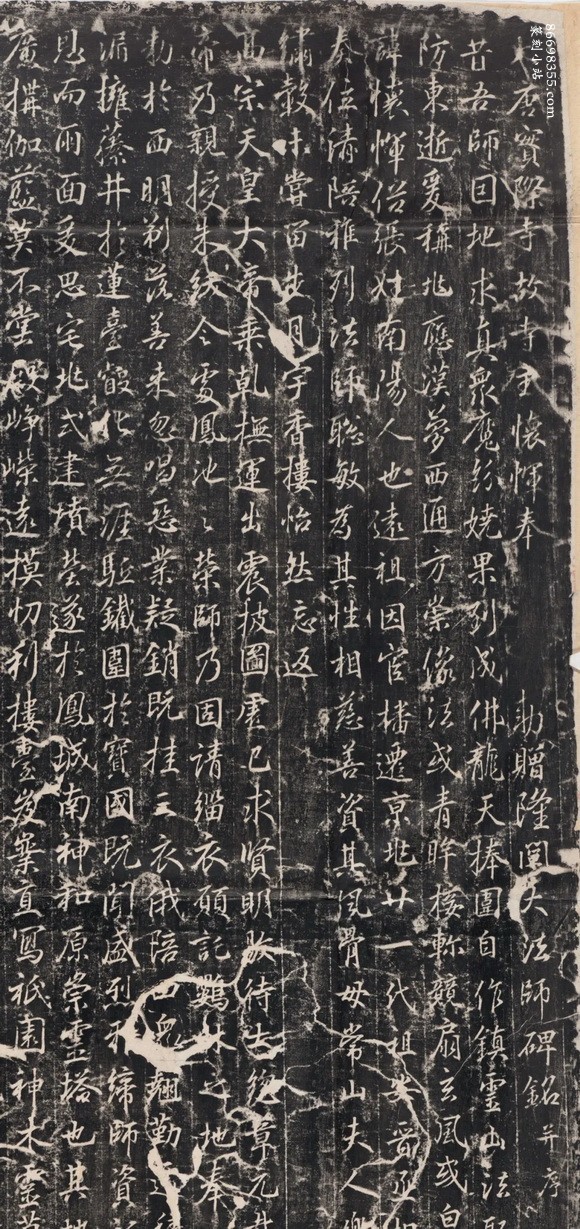 大唐實際寺故寺主懷惲奉 勅贈隆闡大法師碑銘并序
昔吾師因地求真衆魔紛嬈果列成佛龍天捧圍自作鎮靈山法
防東逝爰稱兆應漢夢西通方崇像法或青眸接軫競扇玄風或白
諱懷惲俗張姓南陽人也遠祖因宦播遷京兆廿一代祖安晉丞
奉佳清陪雅列法師聰敏為其性相慈善資其風骨母常山夫人
嘯路未嘗留 月宇香樓怡然忘返
高宗天皇大帝乘乾撫運出震披圖虛己求賢明敭待士總章元
帝乃親授朱紱令處鳳池々榮師乃固請緇衣願託 林之地奉
勅於西明剃落善來忽唱惡業疑銷既挂三衣俄陪四衆翹勤
派擁藻井於蓮臺 化無涯馳鐵圍於寶國既聞盛烈 締師資
息而雨面爰思宅兆式建墳塋遂於鳳城南神和原崇靈塔也其
廣搆伽藍莫不堂殿崢嶸遠模忉利樓臺岌嶪直寫祇園神木靈
86698355.com
篆刻小站